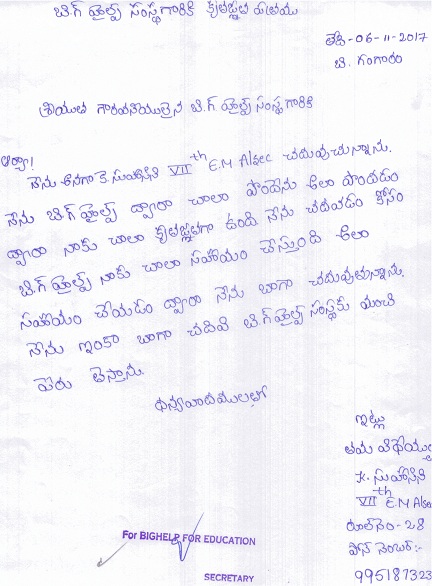 బి.గ్ హెల్ప్ సంస్థగారికి కృతజ్ఞత పత్రము
తేది-06-11-2017
బి. గంగారం
శ్రీయుత గౌరవనీయులైన బి.గ్ హెల్ప్ సంస్థ గారికి
ఆర్యా!
నేను అనగా కె.సుహాసిని VII th E.M Alsec చదువుచున్నాను.
నేను బి.గ్ హెల్ప్ ద్వారా చాలా పొందేను ఆలా పొందడం
ద్వారా నాకు చాలా కృతజ్ఞతగా ఉంది నేను చదవడం కోసం
బి.గ్ హెల్ప్ నాకు చాలా సహాయం చేస్తుంది ఆలా
సహాయం చేయడం ద్వారా నేను బాగా చదువుతున్నాను.
నేను ఇంకా బాగా చదివి బి.గ్ హెల్ప్ సంస్థకు మంచి
పేరు తెస్తాను.
ధన్యవాదములతో
ఇట్లు
తమ విధేయు
K. సుహాసిని
VII th E.M Alsec
రూల్ నెం- 28
ఫోన్ నెంబర్:-
995187323
For BIGHELP FOR EDUCATION
SECRETARY